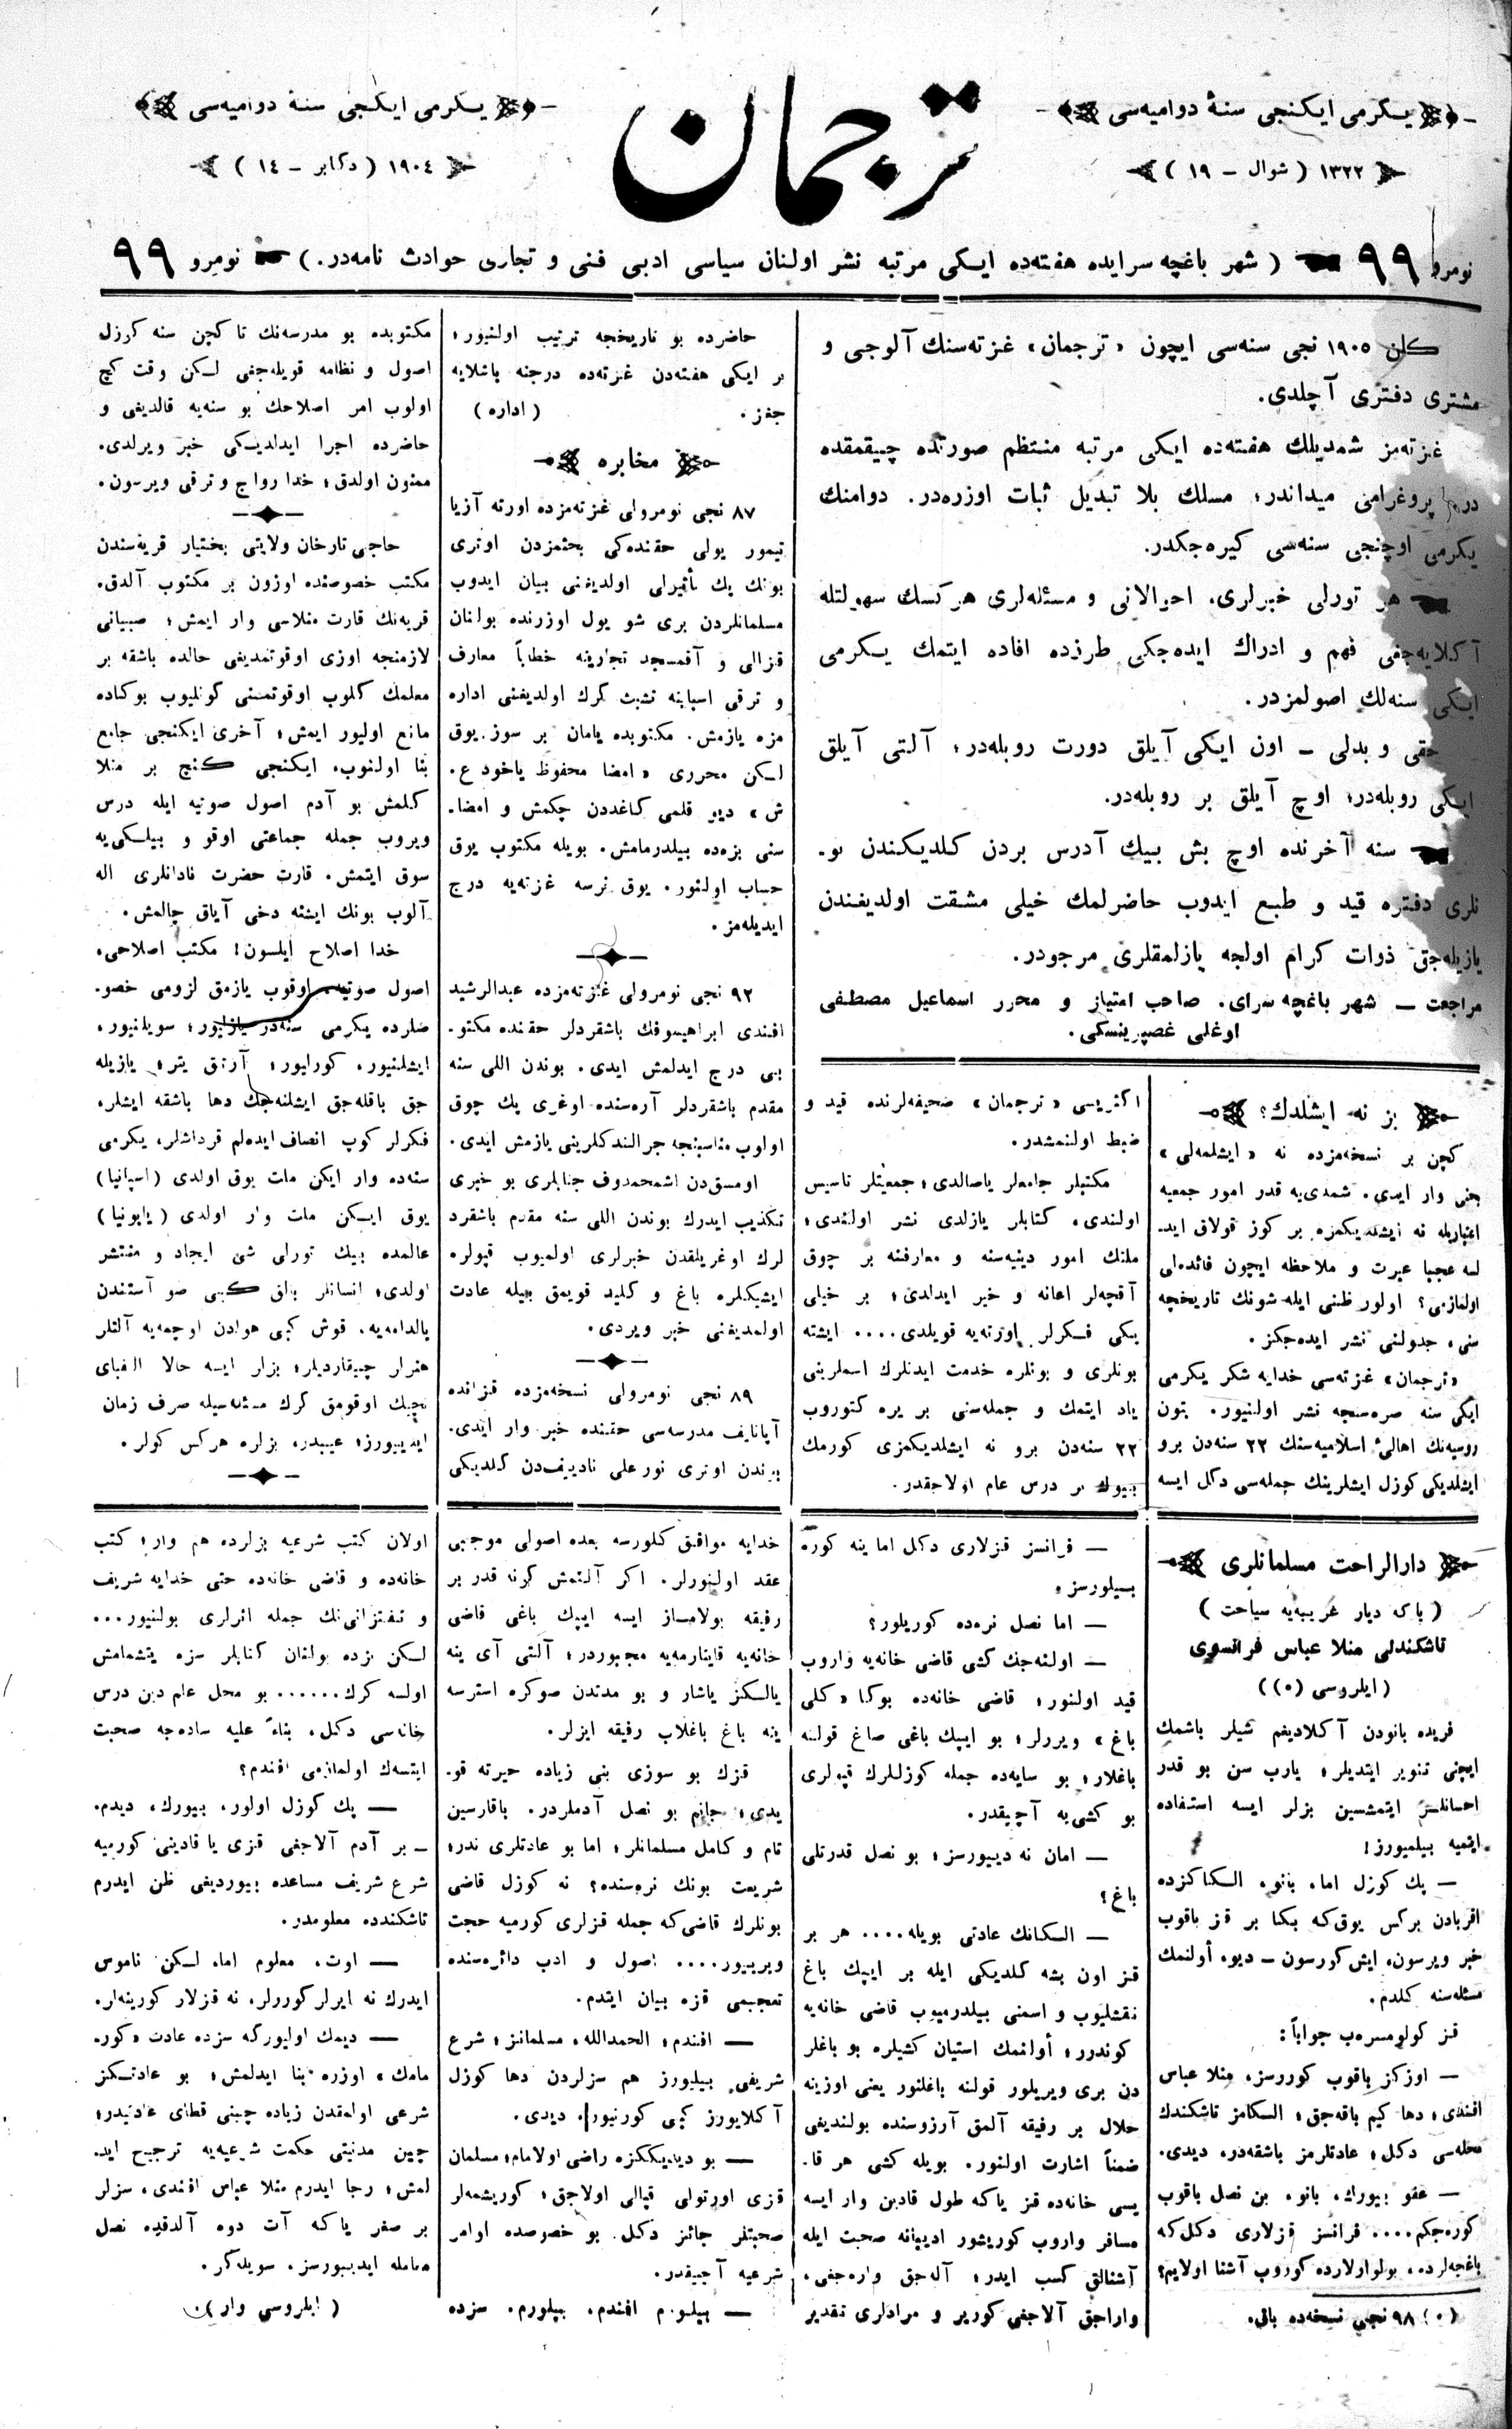 يكرمى ايكنجى سنۀ دواميه‌سى
١٣٢٢ ( شوال – ١٩ )
ترجمان
يكرمى ايكنجى سنۀ دواميه‌سى
١٩٠٤ ( دكابر – ١٤ )
نومرو ٩٩ ( شهر باغچه سرايده هفته‌ده ايكى مرتبه نشر اولنان سياسى ادبى فنى و تجارى حوادث نامه‌در. ) نومرو ٩٩
كلن ١٩٠٥ نجى سنه‌سى ايچون «ترجمان» غزته‌سنك آلوجى و
مشترى دفترى آچلدى.
غزته‌مز شمديلك هفته‌ده ايكى مرتبه منتظم صورتده چيقمقده
در. پروغرامى ميداندر؛ مسلك بلا تبديل ثبات اوزره‌در. دوامنك
يكرمى اوچنجى سنه‌سى كيره‌جكدر.
هر تورلى خبرلرى، احوالاتى و مسئله‌لرى هر كسك سهولتله
آكلايه‌جغى فهم و ادراك ايده‌جكى طرزده افاده ايتمك يكرمى
ايكى سنه‌لك اصولمزدر.
حقى و بدلى – اون ايكى آيلق دورت روبله‌در؛ آلتى آيلق
ايكى روبله‌در؛ اوچ آيلق بر روبله‌در.
سنه آخرنده اوچ بش بيك آدرس بردن كلديكندن بو-
نلرى دفتره قيد و طبع ايدوب حاضرلمك خيلى مشقت اولديغندن
يازيله‌جق ذوات كرام اولجه يازلمقلرى مرجودر.
مراجعت — شهر باغچه سراى. صاحب امتياز و محرر اسماعيل مصطفى
اوغلى غصپرينسكى.
بز نه ايشلدك؟
كچن بر نسخه‌مزده نه «ايشلمه‌لى»
بحثى وار ايدى. شمدى‌يه قدر امور جمعيه
اعتباريله نه ايشلديكمزه بر كوز قولاق ايد-
لسه عجبا عبرت و ملاحظه ايچون فائده‌لى
اولمازمى؟ اولور ظنى ايله شونك تاريخچه
سنى، جدولنى نشر ايده‌جكز.
«ترجمان» غزته‌سى خدايه شكر يكرمى
ايكى سنه صره‌سنجه نشر اولنيور. بتون
روسيه‌نك اهالئ اسلاميه‌سنك ٢٢ سنه‌دن برو
ايشلديكى كوزل ايشلرينك جمله‌سى دكل ايسه
اكثريسى «ترجمان» صحيفه‌لرنده قيد و
ضبط اولنمشدر.
مكتبلر جامعلر ياصالدى؛ جمعيتلر تأسيس
اولندى، كتابلر يازلدى نشر اولندى؛
ملتك امور دينيه‌سنه و معارفنه بر چوق
آقچه‌لر اعانه و خير ايدلدى؛ بر خيلى
يكى فكرلر اورته‌يه قويلدى.... ايشته
بونلرى و بونلره خدمت ايدنلرك اسملرينى
ياد ايتمك و جمله‌سنى بر يره كتوروب
٢٢ سنه‌دن برو نه ايشلديكمزى كورمك
بيوك بر درس عام اولاجقدر.
حاضرده بو تاريخجه ترتيب اولنيور؛
بر ايكى هفته‌دن غزته‌ده درجنه باشلايه
جغز. ( اداره )
مخابره
٨٧ نجى نومرولى غزته‌مزده اورته آزيا
تيمور يولى حقنده‌كى بحثمزدن اوترى
بونك پك تأثيرلى اولديغنى بيان ايدوب
مسلمانلردن برى شو يول اوزرنده بولنان
قزالى و آقمسجد تجارينه خطاباً معارف
و ترقى اسبابنه تشبث كرك اولديغنى اداره
مزه يازمش. مكتوبده يامان بر سوز يوق
لكن محررى «امضا محفوظ ياخود ع.
ش» ديو قلمى كاغددن چكمش و امضا-
سنى بزه‌ده بيلدرمامش. بويله مكتوب يوق
حساب اولنور. يوق نرسه غزته‌يه درج
ايديله‌مز.
٩٢ نجى نومرولى غزته‌مزده عبدالرشيد
افندى ابراهيموفك باشقردلر حقنده مكتو-
بى درج ايدلمش ايدى. بوندن اللى سنه
مقدم باشقردلر آره‌سنده اوغرى پك چوق
اولوب مناسبنجه جرالندكلرينى يازمش ايدى.
اومسق‌دن اشمحمدوف جنابلرى بو خبرى
تكذيب ايدرك بوندن اللى سنه مقدم باشقرد
لرك اوغريلقدن خبرلرى اولميوب قپولره
ايشيكلره باغ و كليد قويمق بيله عادت
اولمديغنى خبر ويردى.
٨٩ نجى نومرولى نسخه‌مزده قزانده
آپانايف مدرسه‌سى حقنده خبر وار ايدى.
بوندن اوترى نور على نادييف‌دن كلديكى
مكتوبده بو مدرسه‌نك تا كچن سنه كوزل
اصول و نظامه قويله‌جغى لكن وقت كچ
اولوب امر اصلاحك بو سنه‌يه قالديغى و
حاضرده اجرا ايدلديكى خبر ويرلدى.
ممنون اولدق؛ خدا رواج و ترقى ويرسون.
حاجى تارخان ولايتى بختيار قريه‌سندن
مكتب خصوصنده اوزون بر مكتوب آلدق.
قريه‌نك قارت منلاسى وار ايمش؛ صبيانى
لازمنجه اوزى اوقوتمديغى حالده باشقه بر
معلمك كلوب اوقوتمسنى كونليوب بوكاده
مانع اوليور ايمش؛ آخرى ايكنجى جامع
بنا اولنوب، ايكنجى كنج بر منلا
كلمش بو آدم اصول صوتيه ايله درس
ويروب جمله جماعتى اوقو و بيلكى‌يه
سوق ايتمش. قارت حضرت نادانلرى اله
آلوب بونك ايشنه دخى آياق چالمش.
خدا اصلاح ايلسون! مكتب اصلاحى،
اصول صوتيه، اوقوب يازمق لزومى خصو-
صلرده يكرمى سنه‌در يازليور؛ سويلنيور،
ايشلنيور، كورليور؛ آرتق يتر؛ يازيله
جق باقله‌جق ايشلنه‌جك دها باشقه ايشلر،
فكرلر كوپ انصاف ايده‌لم قرداشلر، يكرمى
سنه‌ده وار ايكن ملت يوق اولدى (اسپانيا)
يوق ايكن ملت وار اولدى (ياپونيا)
عالمده بيك تورلى شئ ايجاد و منتشر
اولدى؛ انسانلر بالق كبى صو آستندن
يالدامه‌يه، قوش كبى هوادن اوچمه‌يه آلتلر
هنرلر چيقارديلر؛ بزلر ايسه حالا الفباى
نچيك اوقومق كرك مسئله‌سيله صرف زمان
ايديبورز؛ عيبدر، بزلره هركس كولر.
دارالراحت مسلمانلرى
( ياكه ديار غريبه‌يه سياحت )
تاشكندلى منلا عباس فرانسوى
( ايلروسى (٠) )
فريده بانودن آكلاديغم شيلر باشمك
ايچنى تنوير ايتديلر؛ يارب سن بو قدر
احسانلر ايتمشسين بزلر ايسه استفاده
ايتميه بيلميورز!
— پك كوزل اما، بانو، السكاكزده
اقربادن بركس يوق‌كه بكا بر قز باقوب
خبر ويرسون، ايش كورسون – ديو، أولنمك
مسئله‌سنه كلدم.
قز كولومسره‌ب جواباً:
— اوزكز باقوب كوررسز، منلا عباس
افندى؛ دها كيم باقه‌جق؛ السكامز تاشكندك
محله‌سى دكل؛ عادتلرمز باشقه‌در، ديدى.
— عفو بيورك، بانو، بن نصل باقوب
كوره‌جكم.... فرانسز قزلارى دكل‌كه
باغچه‌لرده، بولوارلارده كوروپ آشنا اولايم؟
(٠) ٩٨ نجى نسخه‌ده باق.
— فرانسز قزلارى دكل اما ينه كوره
بيلورسز.
— اما نصل نره‌ده كوريلور؟
— اولنه‌جك كشى قاضى خانه‌يه واروب
قيد اولنور؛ قاضى خانه‌ده بوكا «كلى
باغ» ويررلر؛ بو ايپك باغى صاغ قولنه
باغلار؛ بو سايه‌ده جمله كوزللرك قپولرى
بو كشى‌يه آچيقدر.
— امان نه دييورسز؛ بو نصل قدرتلى
باغ؟
— السكانك عادتى بويله.... هر بر
قز اون يشه كلديكى ايله بر ايپك باغ
نقشليوب و اسمنى بيلدرميوب قاضى خانه‌يه
كوندرر؛ أولنمك استيان كشيلره بو باغلر
دن برى ويريلور قولنه باغلنور يعنى اوزينه
حلال بر رفيقه آلمق آرزوسنده بولنديغى
ضمناً اشارت اولنور. بويله كشى هر قا-
يسى خانه‌ده قز ياكه طول قادين وار ايسه
مسافر واروب كوريشور اديبانه صحبت ايله
آشنالق كسب ايدر؛ آله‌جق واره‌جغى،
واراجق آلاجغى كورير و مرادلرى تقدير
خدايه موافق كلورسه بعده اصولى موجبى
عقد اولنورلر. اكر آلتمش كونه قدر بر
رفيقه بولاماز ايسه ايپك باغى قاضى
خانه‌يه قايتارمه‌يه مجبوردر؛ آلتى آى ينه
يالكز ياشار و بو مدتدن صوكره استرسه
ينه باغ باغلاب رفيقه ايزلر.
قزك بو سوزى بنى زياده حيرته قو-
يدى؛ جانم بو نصل آدملردر. باقارسين
تام و كامل مسلمانلر؛ اما بو عادتلرى ندر؛
شريعت بونك نره‌سنده؟ نه كوزل قاضى
بونلرك قاضى‌كه جمله قزلرى كورميه حجت
ويريبور.... اصول و ادب دائره‌سنده
تعجبمى قزه بيان ايتدم.
— افندم؛ الحمدالله، مسلمانز؛ شرع
شريفى بيليورز هم سزلردن دها كوزل
آكلايورز كبى كورنيور، ديدى.
— بو ديديككزه راضى اولامام؛ مسلمان
قزى اورتولى قپالى اولاجق؛ كوريشمه‌لر
صحبتلر جائز دكل. بو خصوصده اوامر
شرعيه آچيقدر.
— بيلورم افندم، بيلورم. سزده
اولان كتب شرعيه بزلرده هم وار؛ كتب
خانه‌ده و قاضى خانه‌ده حتى خدايه شريف
و تفتزانى‌نك جمله اثرلرى بولنيور...
لكن بزده بولنان كتابلر سزه يتشمامش
اولسه كرك...... بو محل علم دين درس
خانه‌سى دكل، بناءً عليه ساده‌جه صحبت
ايتسه‌ك اولمازمى افندم؟
— پك كوزل اولور، بيورك، ديدم.
– بر آدم آلاجغى قزى يا قادينى كورميه
شرع شريف مساعده بيورديغى ظن ايدرم
تاشكندده معلومدر.
— اوت، معلوم اما، لكن ناموس
ايدرك نه ايرلر كوررلر، نه قزلار كورينه‌لر.
— ديمك اوليوركه سزده عادت «كور-
مامك» اوزره بنا ايدلمش؛ بو عادتكز
شرعى اولمقدن زياده چينى قطاى عادتيدر؛
چين مدنيتى حكمت شرعيه‌يه ترجيح ايد-
لمش؛ رجا ايدرم منلا عباس افندى، سزلر
بر صغر ياكه آت دوه آلدقده نصل
معامله ايديبورسز، سويله‌كز.
( ايلروسى وار )